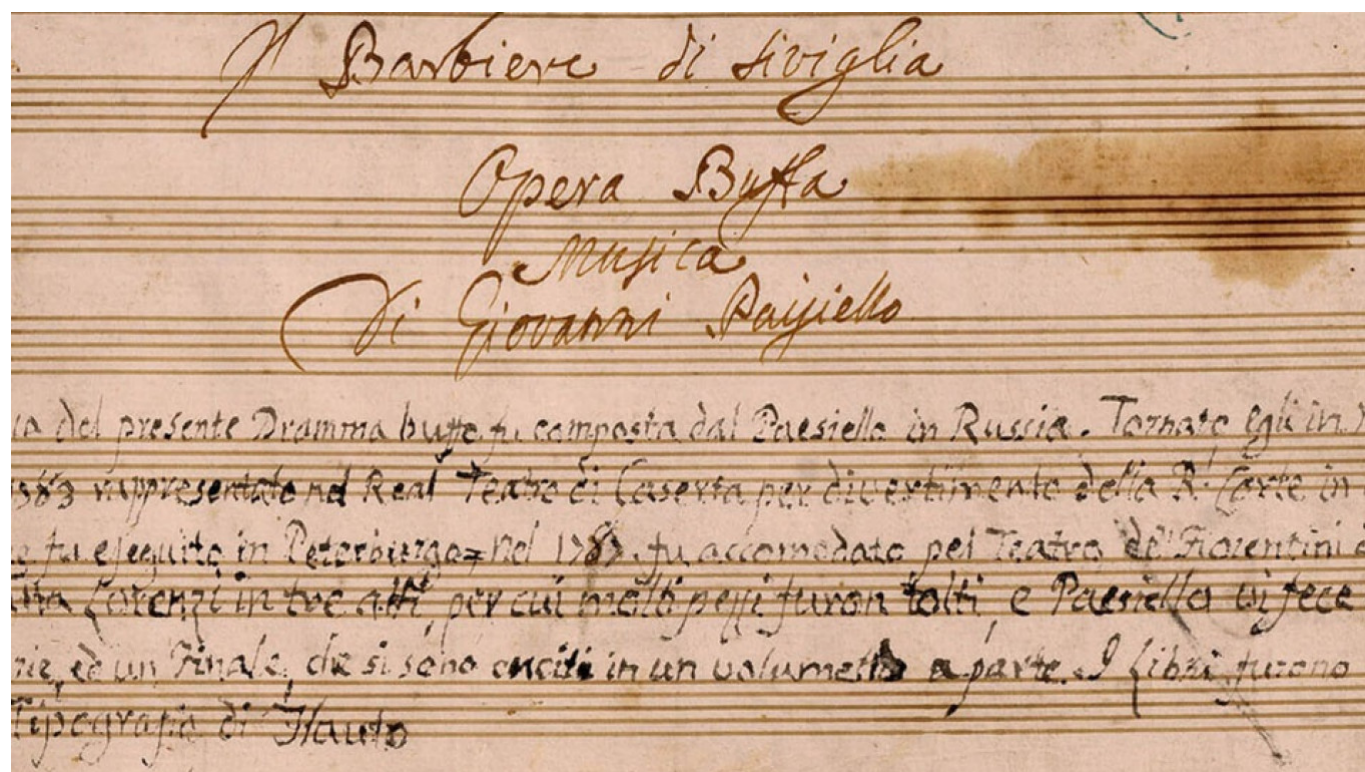 Il Barbiere di Siviglia
Opera Buffa
Musica
Di Giovanni Paisiello
del presente Dramma buffo fu composta dal Paesiello in Russia. Tornato egli in
rappresentato nel Real Teatro di Caserta per divertimento della R. Corte in
fu eseguito in Peterburgo = Nel 1787. fu accomodato pel Teatro de' Fiorentini
Lorenzi in tre atti, per cui molti pezzi furon tolti, e Paesiello vi fece
ed un Finale, che si sono in un volumetto a parte. I Libri furono
Tipografia di Flauto